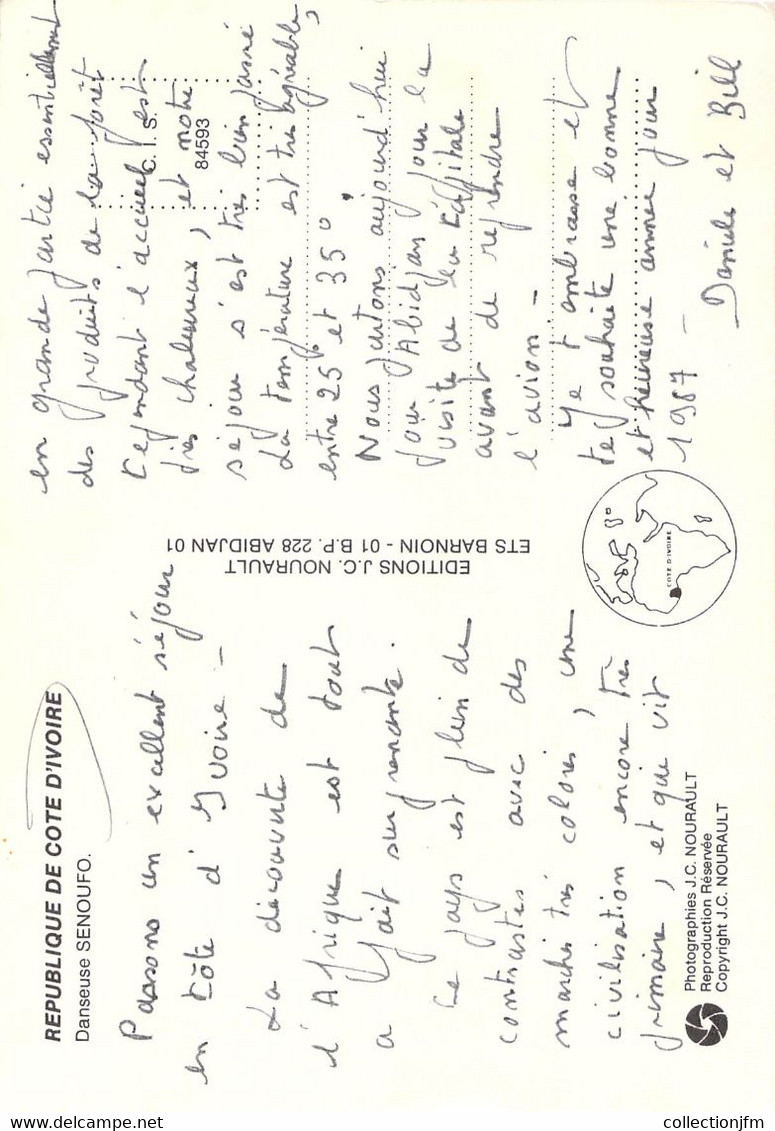 REPUBLIQUE DE COTE D'IVOIRE
Danseuse SENOUFO.
Passons un excellent séjour
en Côte d'Ivoire -
La découverte de
l'Afrique est tout
a fait surprenante.
Le pays est plein de
contrastes avec des
marchés très colorés, une
civilisation encore très
primaire, et qui vit
Photographies J.C. NOURAULT
Reproduction Réservée
Copyright J.C. NOURAULT
EDITIONS J.C. NOURAULT
ETS BARNOIN - 01 B.P. 228 ABIDJAN 01
COTE D'IVOIRE
en grande partie essentiellement
des produits de la forêt
Cependant l'accueil est
très chaleureux, et notre
séjour s'est très bien passé
La température est très agréable,
entre 25° et 35°.
Nous partons aujourd'hui
pour Abidjan pour la
visite de la Capitale
avant de reprendre
l'avion -
Je t'embrasse et
te souhaite une bonne
et heureuse année pour
1987 -
Daniele et Bill
C.I.S.
84593
www.delcampe.net
collectionjfm